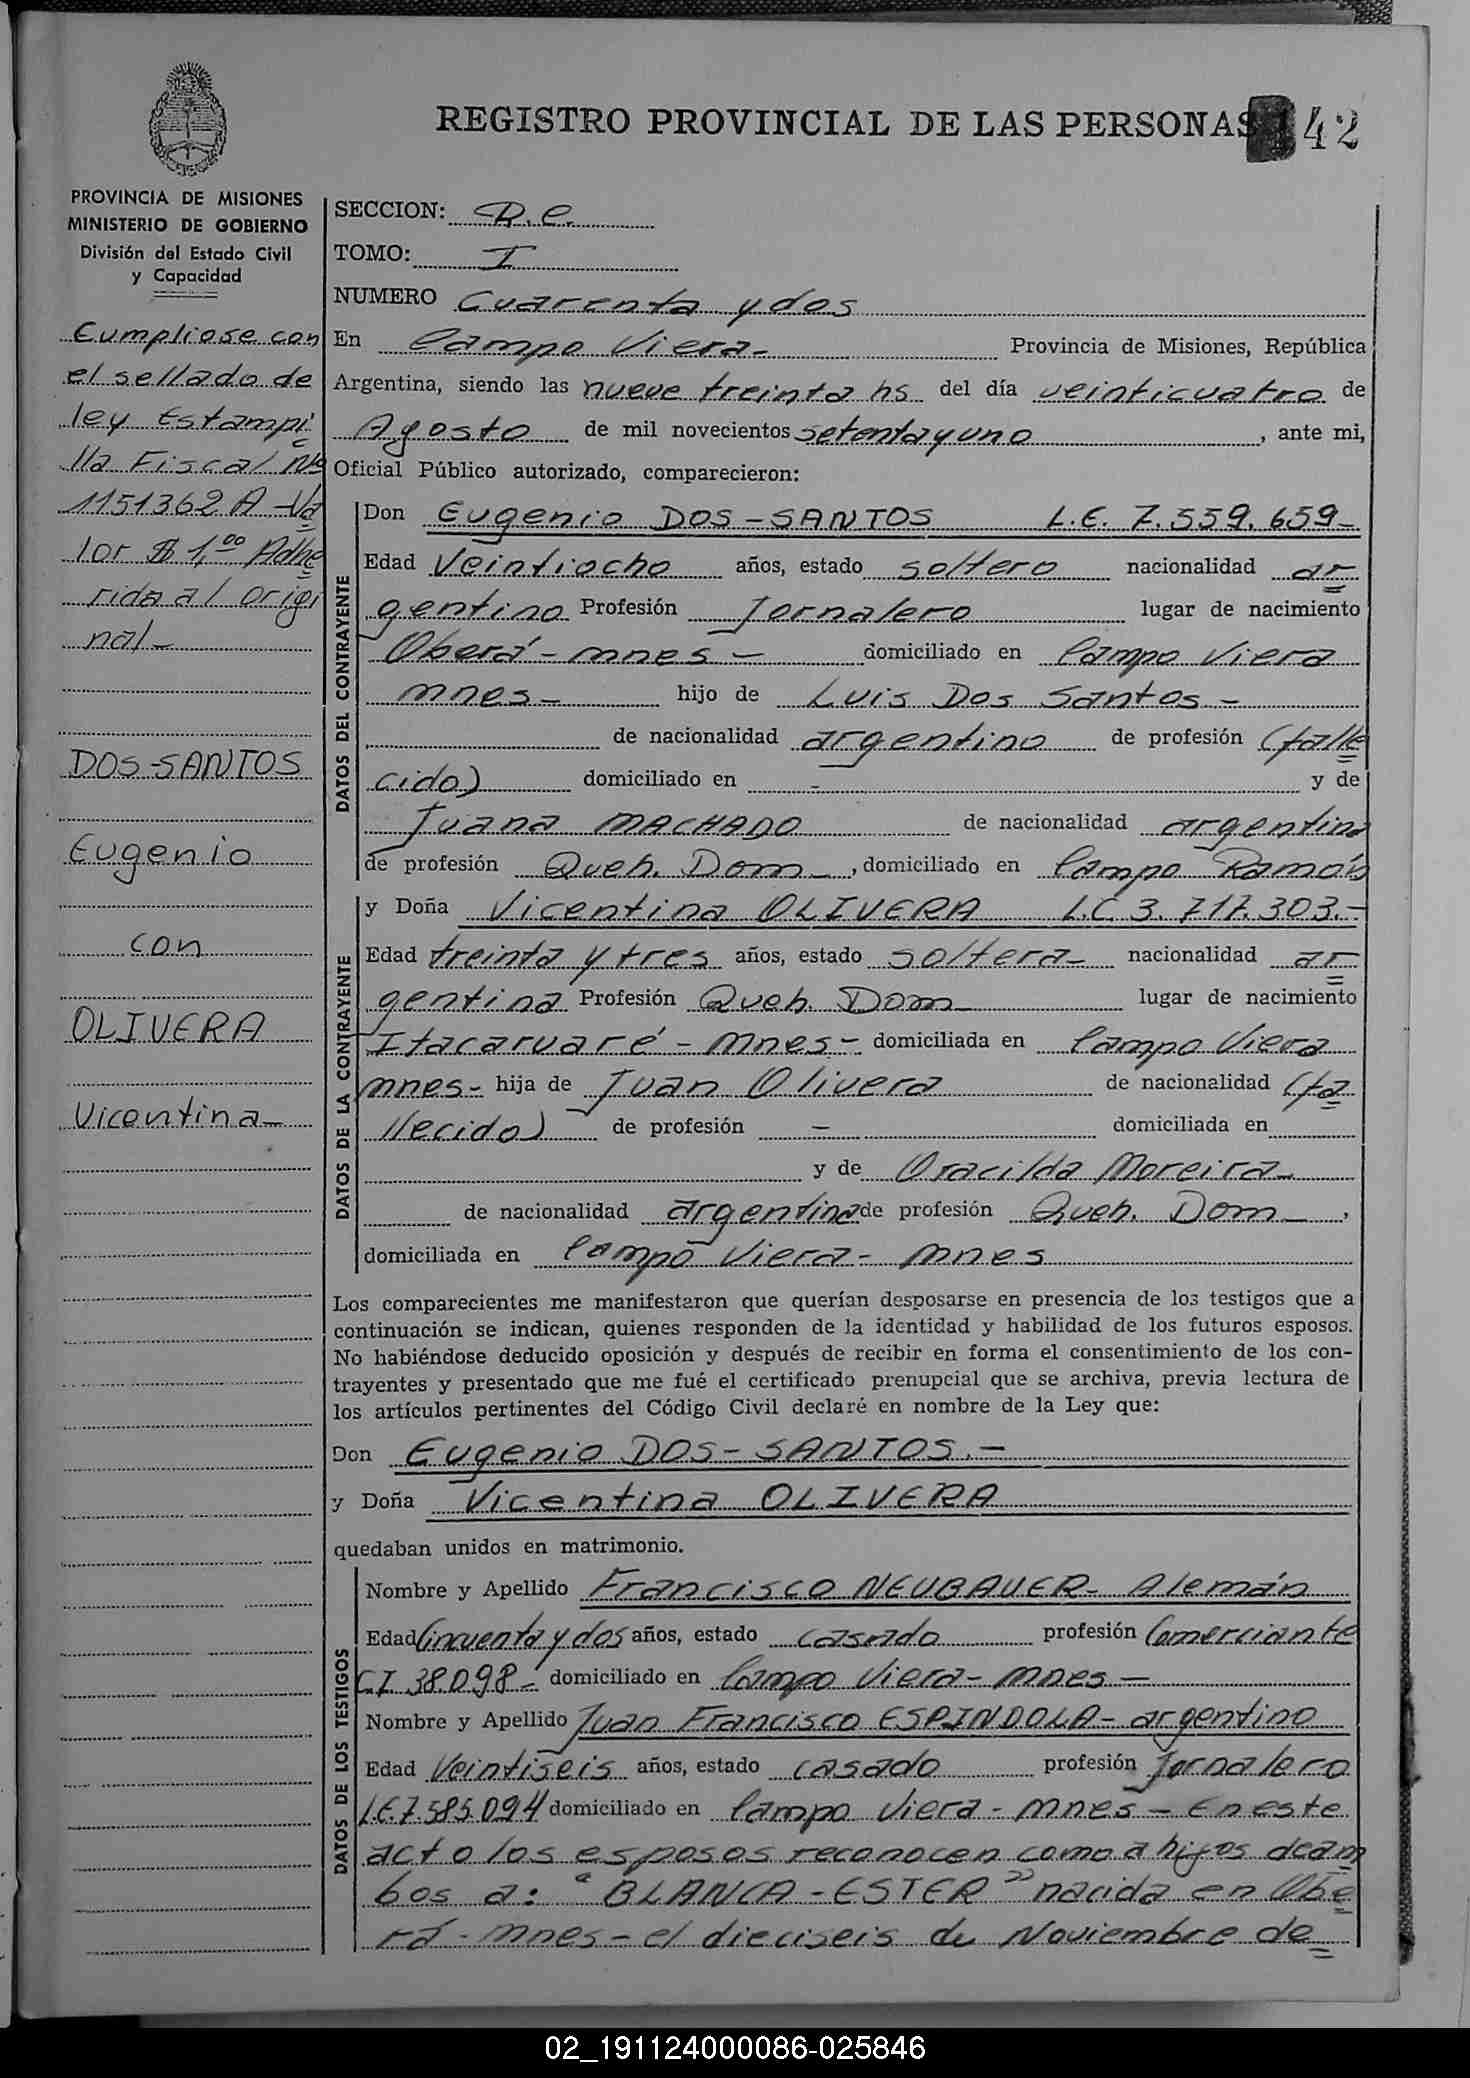 REGISTRO PROVINCIAL DE LAS PERSONAS
42
PROVINCIA DE MISIONES
MINISTERIO DE GOBIERNO
División del Estado Civil
y Capacidad
Cumpliose con
el sellado de
ley Estampi
lla Fiscal Nº
1151362 A - Va
lor $ 1,00 Adhe
rida al origi
nal -
DOS-SANTOS
Eugenio
con
OLIVERA
Vicentina -
SECCION: D.C.
TOMO: I
NUMERO Cuarenta y dos
En Campo Viera - Provincia de Misiones, República
Argentina, siendo las nueve treinta hs del día veinticuatro de
Agosto de mil novecientos setenta y uno , ante mi,
Oficial Público autorizado, comparecieron:
DATOS DEL CONTRAYENTE
Don Eugenio DOS-SANTOS L.E. 7.559.659 -
Edad Veintiocho años, estado soltero nacionalidad ar
gentino Profesión Jornalero lugar de nacimiento
Oberá - mnes - domiciliado en Campo Viera
mnes - hijo de Luis Dos Santos -
de nacionalidad argentino de profesión (falle
cido) domiciliado en - y de
Juana MACHADO de nacionalidad argentina
de profesión Queh. Dom - , domiciliado en Campo Ramón
DATOS DE LA CONTRAYENTE
y Doña Vicentina OLIVERA L.C 3.717.303.-
Edad treinta y tres años, estado soltera - nacionalidad ar
gentina Profesión Queh. Dom lugar de nacimiento
Itacaruaré - mnes - domiciliada en Campo Viera
mnes - hija de Juan Olivera de nacionalidad (fa
llecido) de profesión - domiciliada en
y de Oracilda Moreira -
de nacionalidad argentina de profesión Queh. Dom - ,
domiciliada en Campo Viera - mnes
Los comparecientes me manifestaron que querían desposarse en presencia de los testigos que a
continuación se indican, quienes responden de la identidad y habilidad de los futuros esposos.
No habiéndose deducido oposición y después de recibir en forma el consentimiento de los con-
trayentes y presentado que me fué el certificado prenupcial que se archiva, previa lectura de
los artículos pertinentes del Código Civil declaré en nombre de la Ley que:
Don Eugenio DOS-SANTOS.-
y Doña Vicentina OLIVERA
quedaban unidos en matrimonio.
DATOS DE LOS TESTIGOS
Nombre y Apellido Francisco NEUBAUER - Alemán
Edad Cincuenta y dos años, estado casado profesión Comerciante
C.I. 38.098 - domiciliado en Campo Viera - mnes -
Nombre y Apellido Juan Francisco ESPINDOLA - argentino
Edad Veintiseis años, estado casado profesión Jornalero
L.E.7.585.094 domiciliado en Campo Viera - mnes - En este
acto los esposos reconocen como a hijos de am
bos a: "BLANCA-ESTER" nacida en Obe
rá - mnes - el dieciseis de Noviembre de
02_191124000086-025846